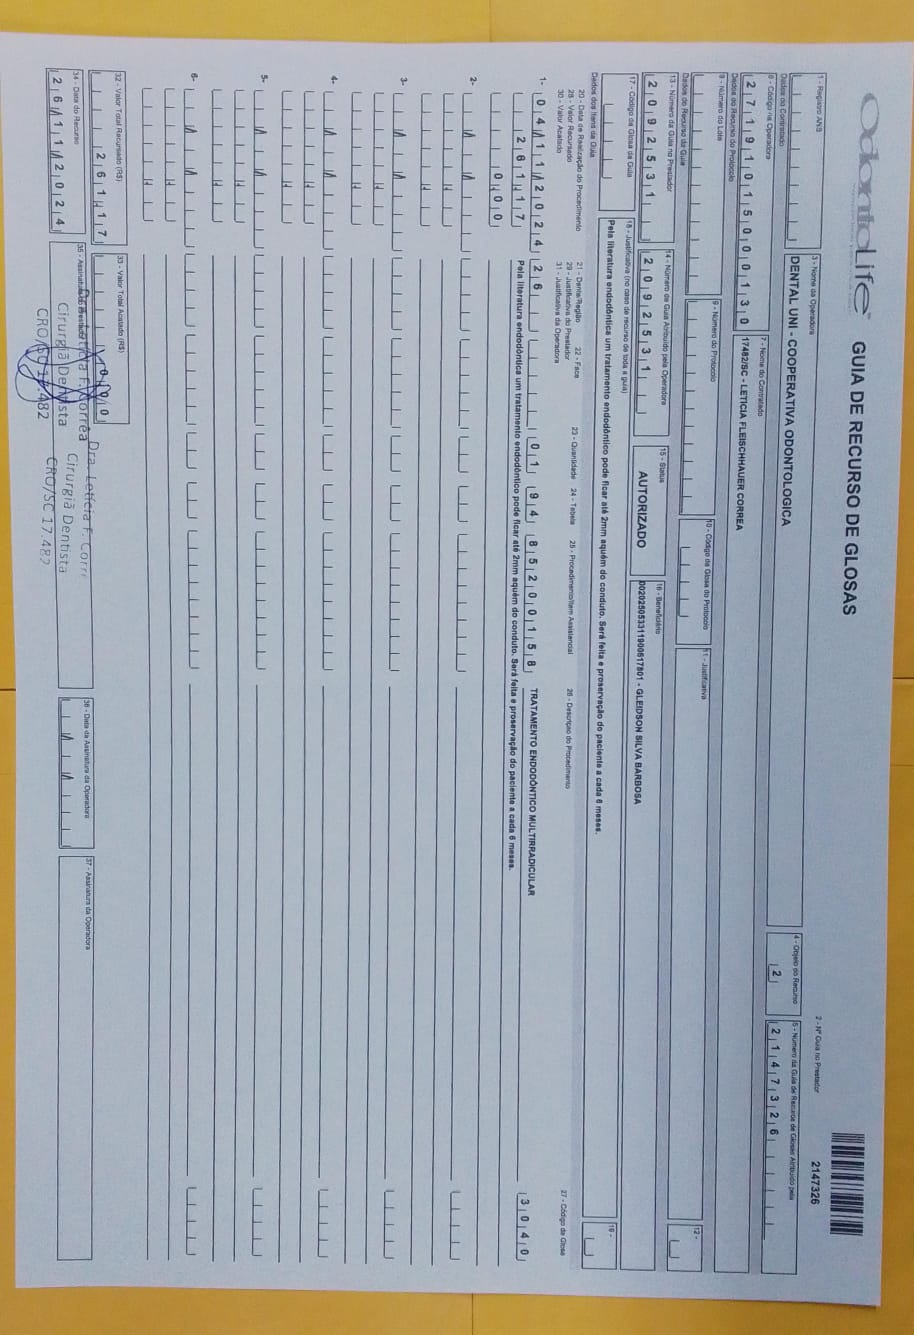 OdontoLife
GUIA DE RECURSO DE GLOSAS
2 - Nº Guia no Prestador 2147326
1 - Registro ANS
3 - Nome da Operadora
DENTAL UNI - COOPERATIVA ODONTOLOGICA
4 - Objeto do Recurso
2
5 - Número da Guia de Recurso de Glosas Atribuído pela
2147326
Dados do Contratado
6 - Código na Operadora
27191015000130
7 - Nome do Contratado
17482/SC - LETICIA FLEISCHHAUER CORREA
Dados do Recurso do Protocolo
8 - Número do Lote
9 - Número do Protocolo
10 - Código da Glosa do Protocolo
11 - Justificativa
12 -
Dados do Recurso da Guia
13 - Número da Guia no Prestador
2092531
14 - Número da Guia Atribuído pela Operadora
2092531
15 - Status
AUTORIZADO
16 - Beneficiário
00202505331190061​7801 - GLEIDSON SILVA BARBOSA
17 - Código da Glosa da Guia
18 - Justificativa (no caso de recurso de toda a guia)
Pela literatura endodôntica um tratamento endodôntico pode ficar até 2mm aquém do conduto. Será feita e proservação do paciente a cada 6 meses.
19 -
Dados dos Itens da Guia
20 - Data de Realização do Procedimento 21 - Dente/Região 22 - Face 23 - Quantidade 24 - Tabela 25 - Procedimento/Item Assistencial 26 - Descrição do Procedimento 27 - Código da Glosa
28 - Valor Recursado 29 - Justificativa do Prestador
30 - Valor Acatado 31 - Justificativa da Operadora
1- 04/11/2024 26 01 94 85200158 TRATAMENTO ENDODÔNTICO MULTIRRADICULAR 3040
261,17 Pela literatura endodôntica um tratamento endodôntico pode ficar até 2mm aquém do conduto. Será feita e proservação do paciente a cada 6 meses.
0,00
2-
3-
4-
5-
6-
32 - Valor Total Recursado (R$)
261,17
33 - Valor Total Acatado (R$)
0,00
34 - Data do Recurso
26/11/2024
35 - Assinatura do Prestador
Dra. Letícia F. Corrêa
Cirurgiã Dentista
CRO/SC 17.482
Dra. Letícia F. Corr
Cirurgiã Dentista
CRO/SC 17.482
36 - Data da Assinatura da Operadora
37 - Assinatura da Operadora